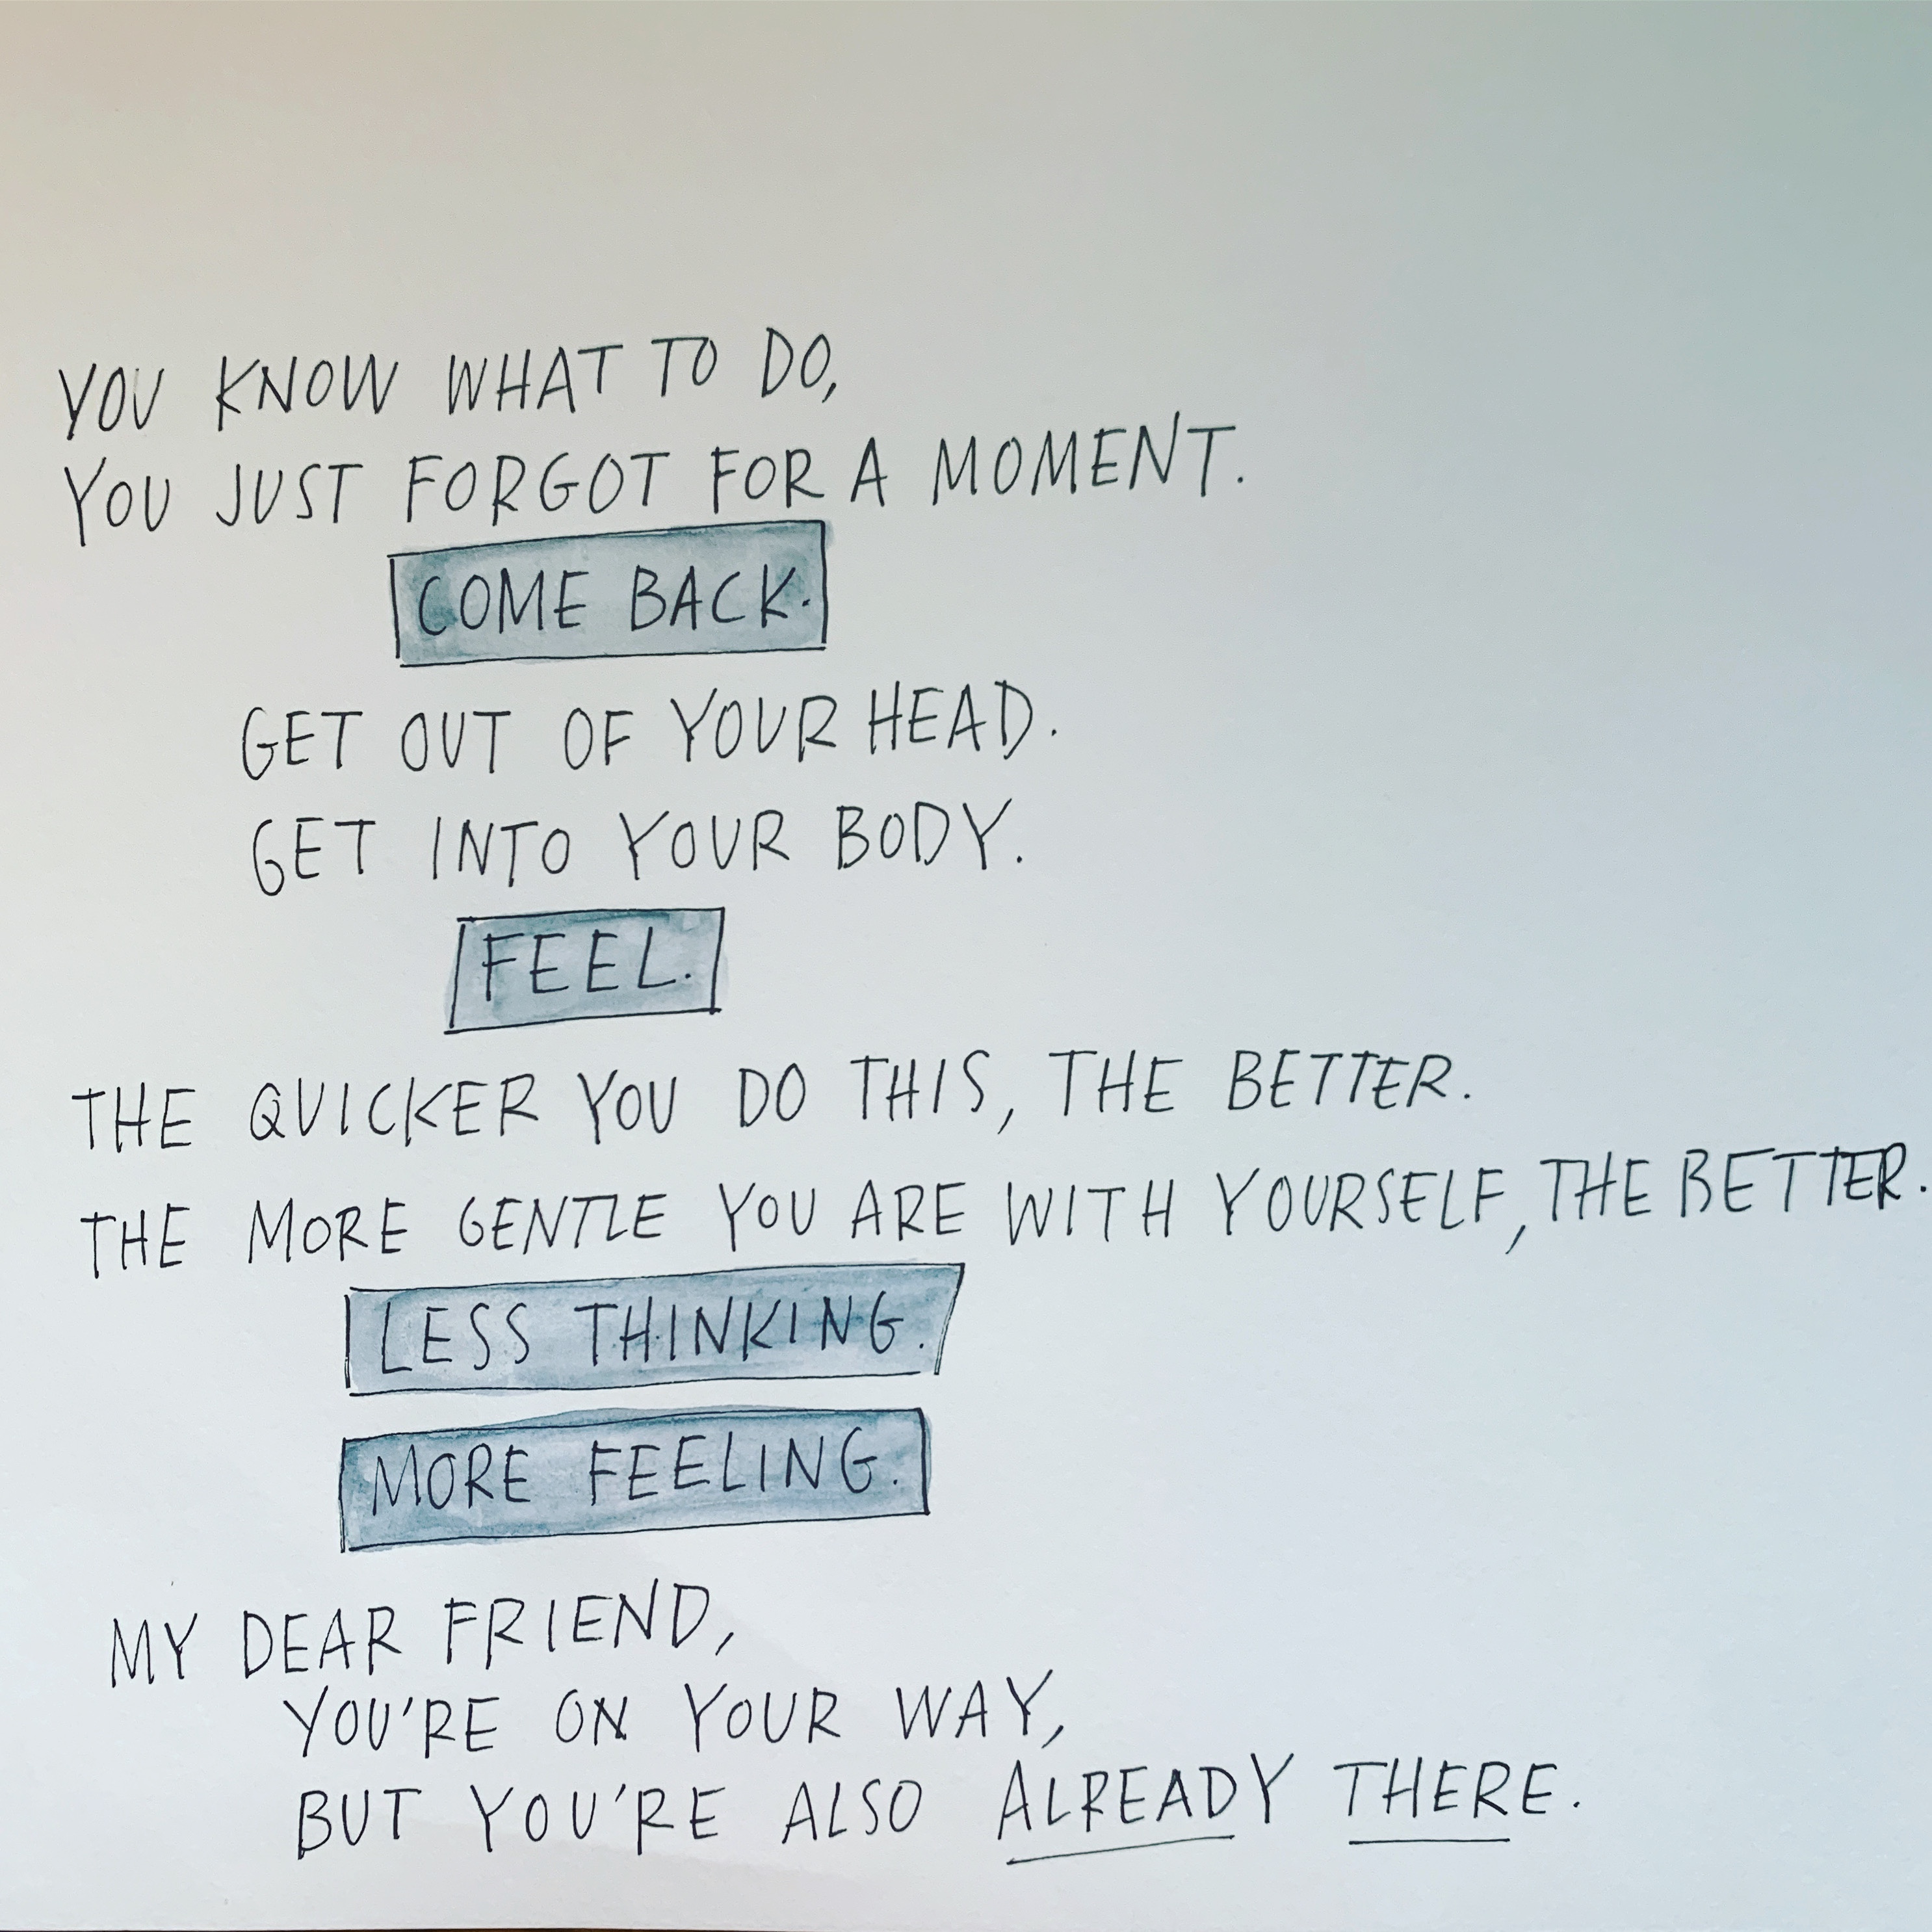 YOU KNOW WHAT TO DO,
YOU JUST FORGOT FOR A MOMENT.
COME BACK.
GET OUT OF YOUR HEAD.
GET INTO YOUR BODY.
FEEL.
THE QUICKER YOU DO THIS, THE BETTER.
THE MORE GENTLE YOU ARE WITH YOURSELF, THE BETTER.
LESS THINKING.
MORE FEELING.
MY DEAR FRIEND,
YOU'RE ON YOUR WAY,
BUT YOU'RE ALSO ALREADY THERE.